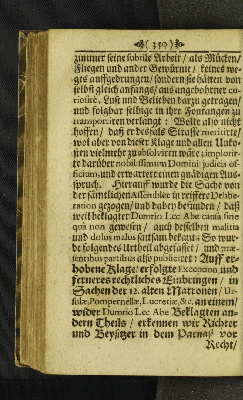 ( 350 )
zimmer seine subtile Arbeit / als Mücken /
Fliegen und ander Gewürme / keines we-
ges auffgedrungen / sondern sie hätten von
selbst gleich anfangs / aus angebohrner cu-
riosité, Lust und Belieben darzu getragen /
und folgbar selbige in ihre Fontangen zu
transportiren verlanget: Wolte also nicht
hoffen / daß er deßfals Straffe meritirte /
wol aber von dieser Klage und allen Unko-
sten vielmehr zu absolviren wäre; implorir-
te darüber nobilissimum Domini judicis of-
ficium, und erwartete einen gnädigen Aus-
spruch. Hierauff wurde die Sache von
der sämtlichen Assemblée in reiffere Delibe-
ration gezogen / und dabey befunden / daß
weil beklagter Dumrio Lec Abe causa sine
qua non gewesen / auch desselben malitia
und dolus malus sattsam bekant: So wur-
de folgendes Urtheil abgefasset / und præ-
sentibus partibus also publiciret: Auff er-
hobene Klage / erfolgte Exception und
ferneres rechtliches Einbringen / in
Sachen der 12. alten Matronen / Ur-
sulæ, Pompernellæ, Lucretiæ, &c. an einem /
wider Dumrio Lec Abe Beklagten an-
dern Theils / erkennen wir Richter
und Beysitzer in dem Parnaß vor
Recht /